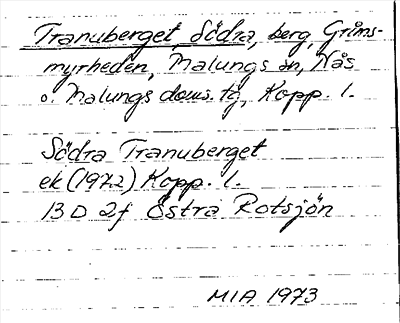 Tranuberget, Södra, berg, Gråms-
myrheden, Malungs sn, Nås
o. Malungs doms. tg, Kopp. l.
Södra Tranuberget
ek (1972) Kopp. l.
13 D 2f Östra Rotsjön
MIA 1973